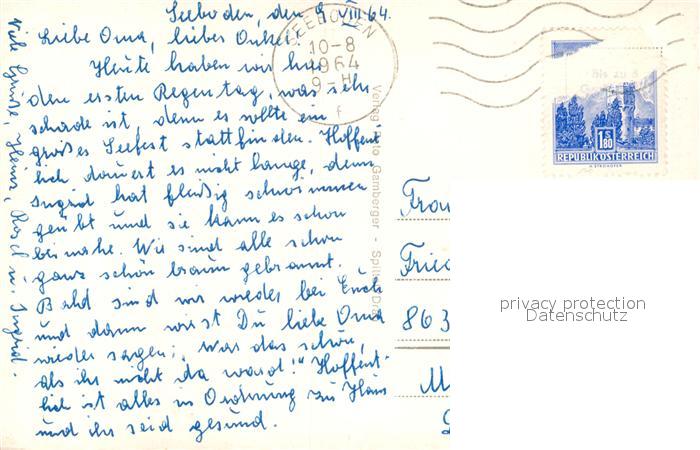 Seeboden, den 9. VIII 64.
Liebe Oma, liebes Onkel!
Heute haben wir hier
den ersten Regentag, was sehr
schade ist, denn es sollte ein
großes Seefest stattfinden. Hoffent
lich dauert es nicht lange, denn
Ingrid hat fleißig schwimmen
geübt und sie kann es schon
beinahe. Wir sind alle schon
ganz schön braun gebrannt.
Bald sind wir wieder bei Euch
und dann wirst Du liebe Oma
wieder sagen: "War das schön,
als ihr nicht da ward!" Hoffent-
lich ist alles in Ordnung zu Haus
und ihr seid gesund.
Viele Grüße, Heinz, u. Ingrid.
SEEBODEN
10-8
1964
9-H
f
Verlag Gamberger - Spittal/Drau
Bis zu
1.80
REPUBLIK ÖSTERREICH
Frau
Fried
863
M
privacy protection
Datenschutz